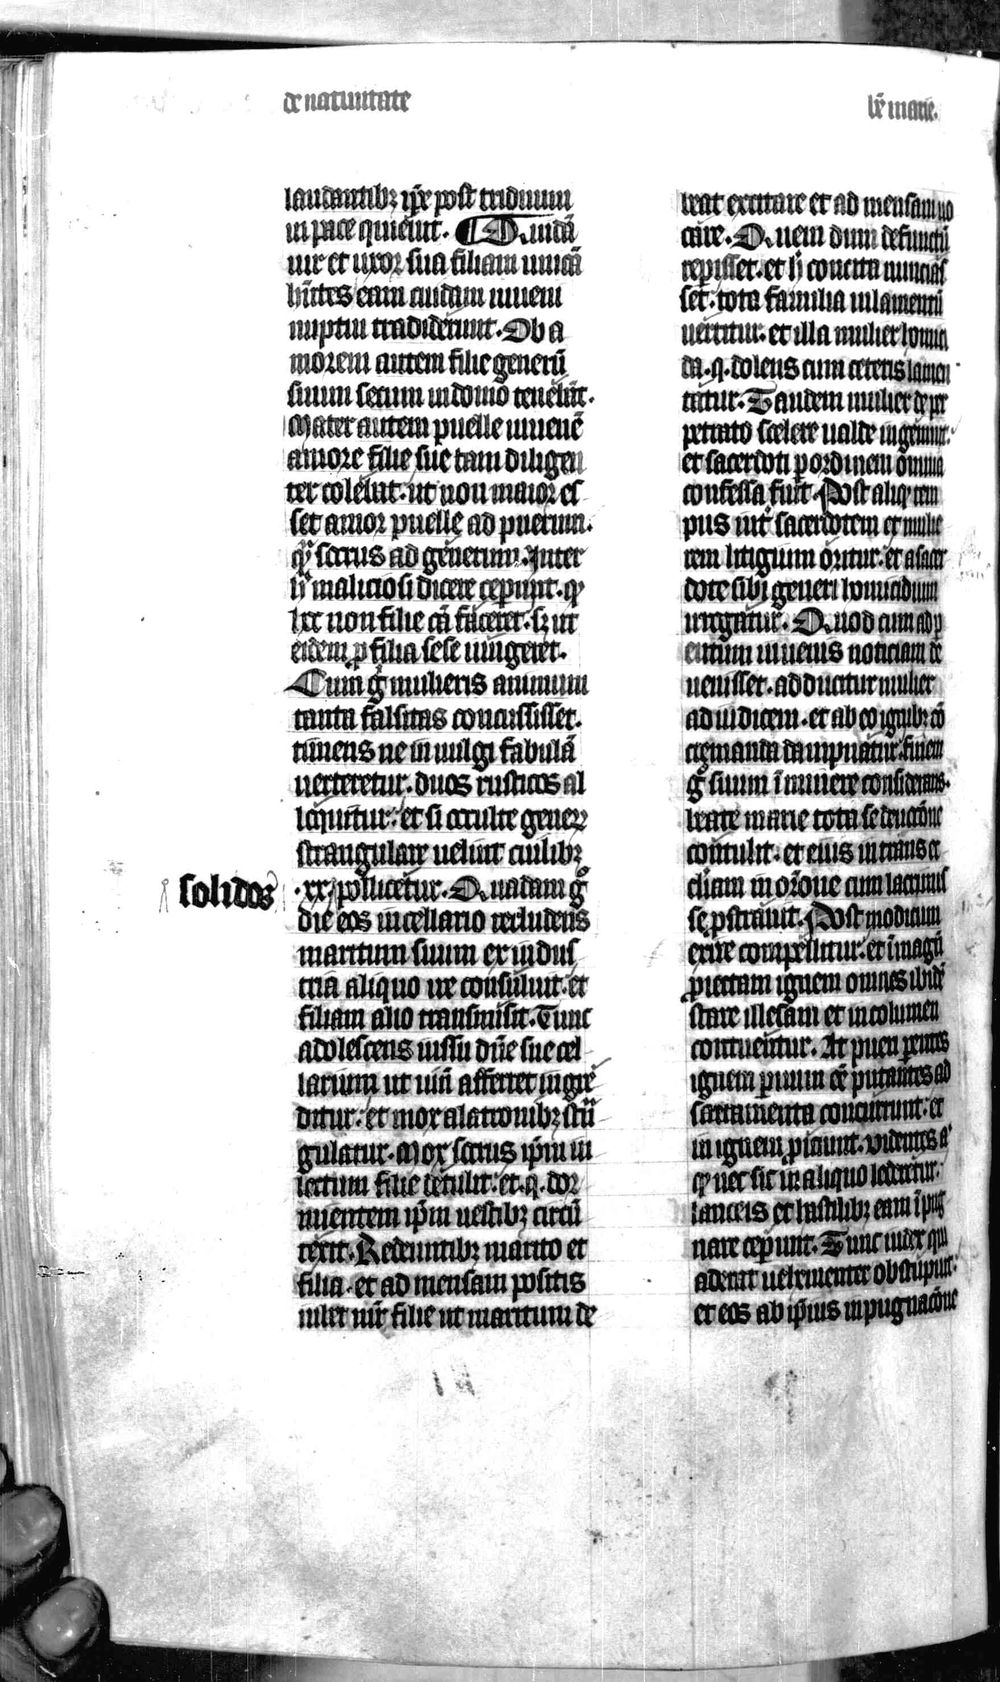 de natiuitate
bẽ marie.
laudantibꝫ ip̃e post triduum
in pace quieuit. ¶ Quidã
uir et uxor sua filiam unicã
hñtes eam cuidam iuueni
nuptui tradiderunt. Ob a
morem autem filie generũ
suum secum in domo tenebãt.
Mater autem puelle iuuenẽ
amore filie sue tam diligen
ter colebat. ut non maior es
set amor puelle ad puerum.
qᷓ socrus ad generum. Inter
h̃ maliciosi dicere ceperunt. qꝫ
hec non filie cã faceret. sꝫ ut
eidem ꝓ filia sese iungeret.
Cum gͦ mulieris animum
tanta falsitas concussisset.
timens ne in uulgi fabulã
uerteretur. duos rusticos al
loquitur. et si occulte generꝝ
strangulare uelint cuilibꝫ
solidos
.xx. pollicetur. Quadam gͦ
die eos in cellario recludens
maritum suum ex indus
tria aliquo ire consuluit. et
filiam alio transmisit. Tunc
adolescens iussu dñe sue cel
larium ut uinũ afferret ingre
ditur. et mox a latronibꝫ strã
gulatur. Mox socrus ip̃m in
lectum filie detulit. et .q. dor
mientem ip̃m uestibꝫ circũ
texit. Redeuntibꝫ marito et
filia. et ad mensam positis
iubet mr̃ filie ut maritum de
beat excitare et ad mensam uo
care. Quem dum defunctũ
reperisset. et h̃ concita nuncias
set. tota familia in lamentũ
uertitur. et illa mulier homici
da .q. dolens cum ceteris lamen
tatur. Tandem mulier de per
petrato scelere ualde ingemuit.
et sacerdoti ꝑ ordinem omnia
confessa fuit. Post aliqꝫ tem
pus int̃ sacerdotem et mulie
rem litigium oritur. et a sacer
dote sibi generi homicidium
irrogatur. Quod cum ad ꝑ
entum iuuenis noticiam de
uenisset. adducitur mulier
ad iudicem. et ab eo ignibꝫ cõ
cremanda dampnatur. finem
gͦ suum ĩminere considerans.
beate marie tota se deuocõne
contulit. et eius intrans ec
cl̃iam in or̃one cum lacrimis
se ꝓstrauit. Post modicum
exire compellitur. et ĩ magnũ
ꝓiectam ignem omnes ibidẽ
stare illesam et incolumen
contuentur. At pueri parentes
ignem paruum eẽ putantes ad
sarmenta concurrunt. et
in ignem ꝓiciunt. videntes a
qꝫ nec sic in aliquo lederetur.
lanceis et hastilibꝫ eam ĩpug
nare ceperunt. Tunc iudex qui
aderat uehementer obstupuit.
et eos ab ip̃ius inpugnacõne